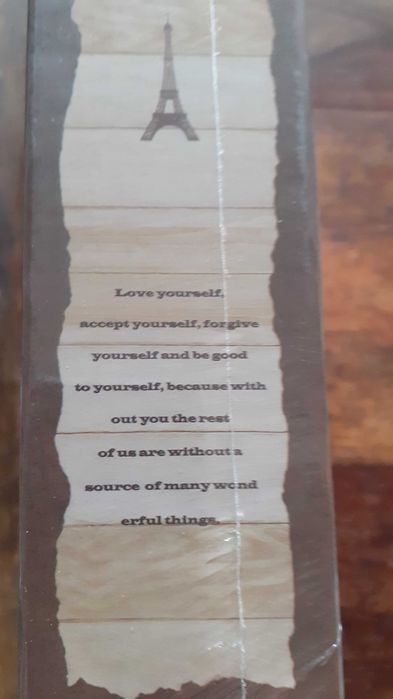 Love yourself,
accept yourself, forgive
yourself and be good
to yourself, because with
out you the rest
of us are without a
source of many wond
erful things.